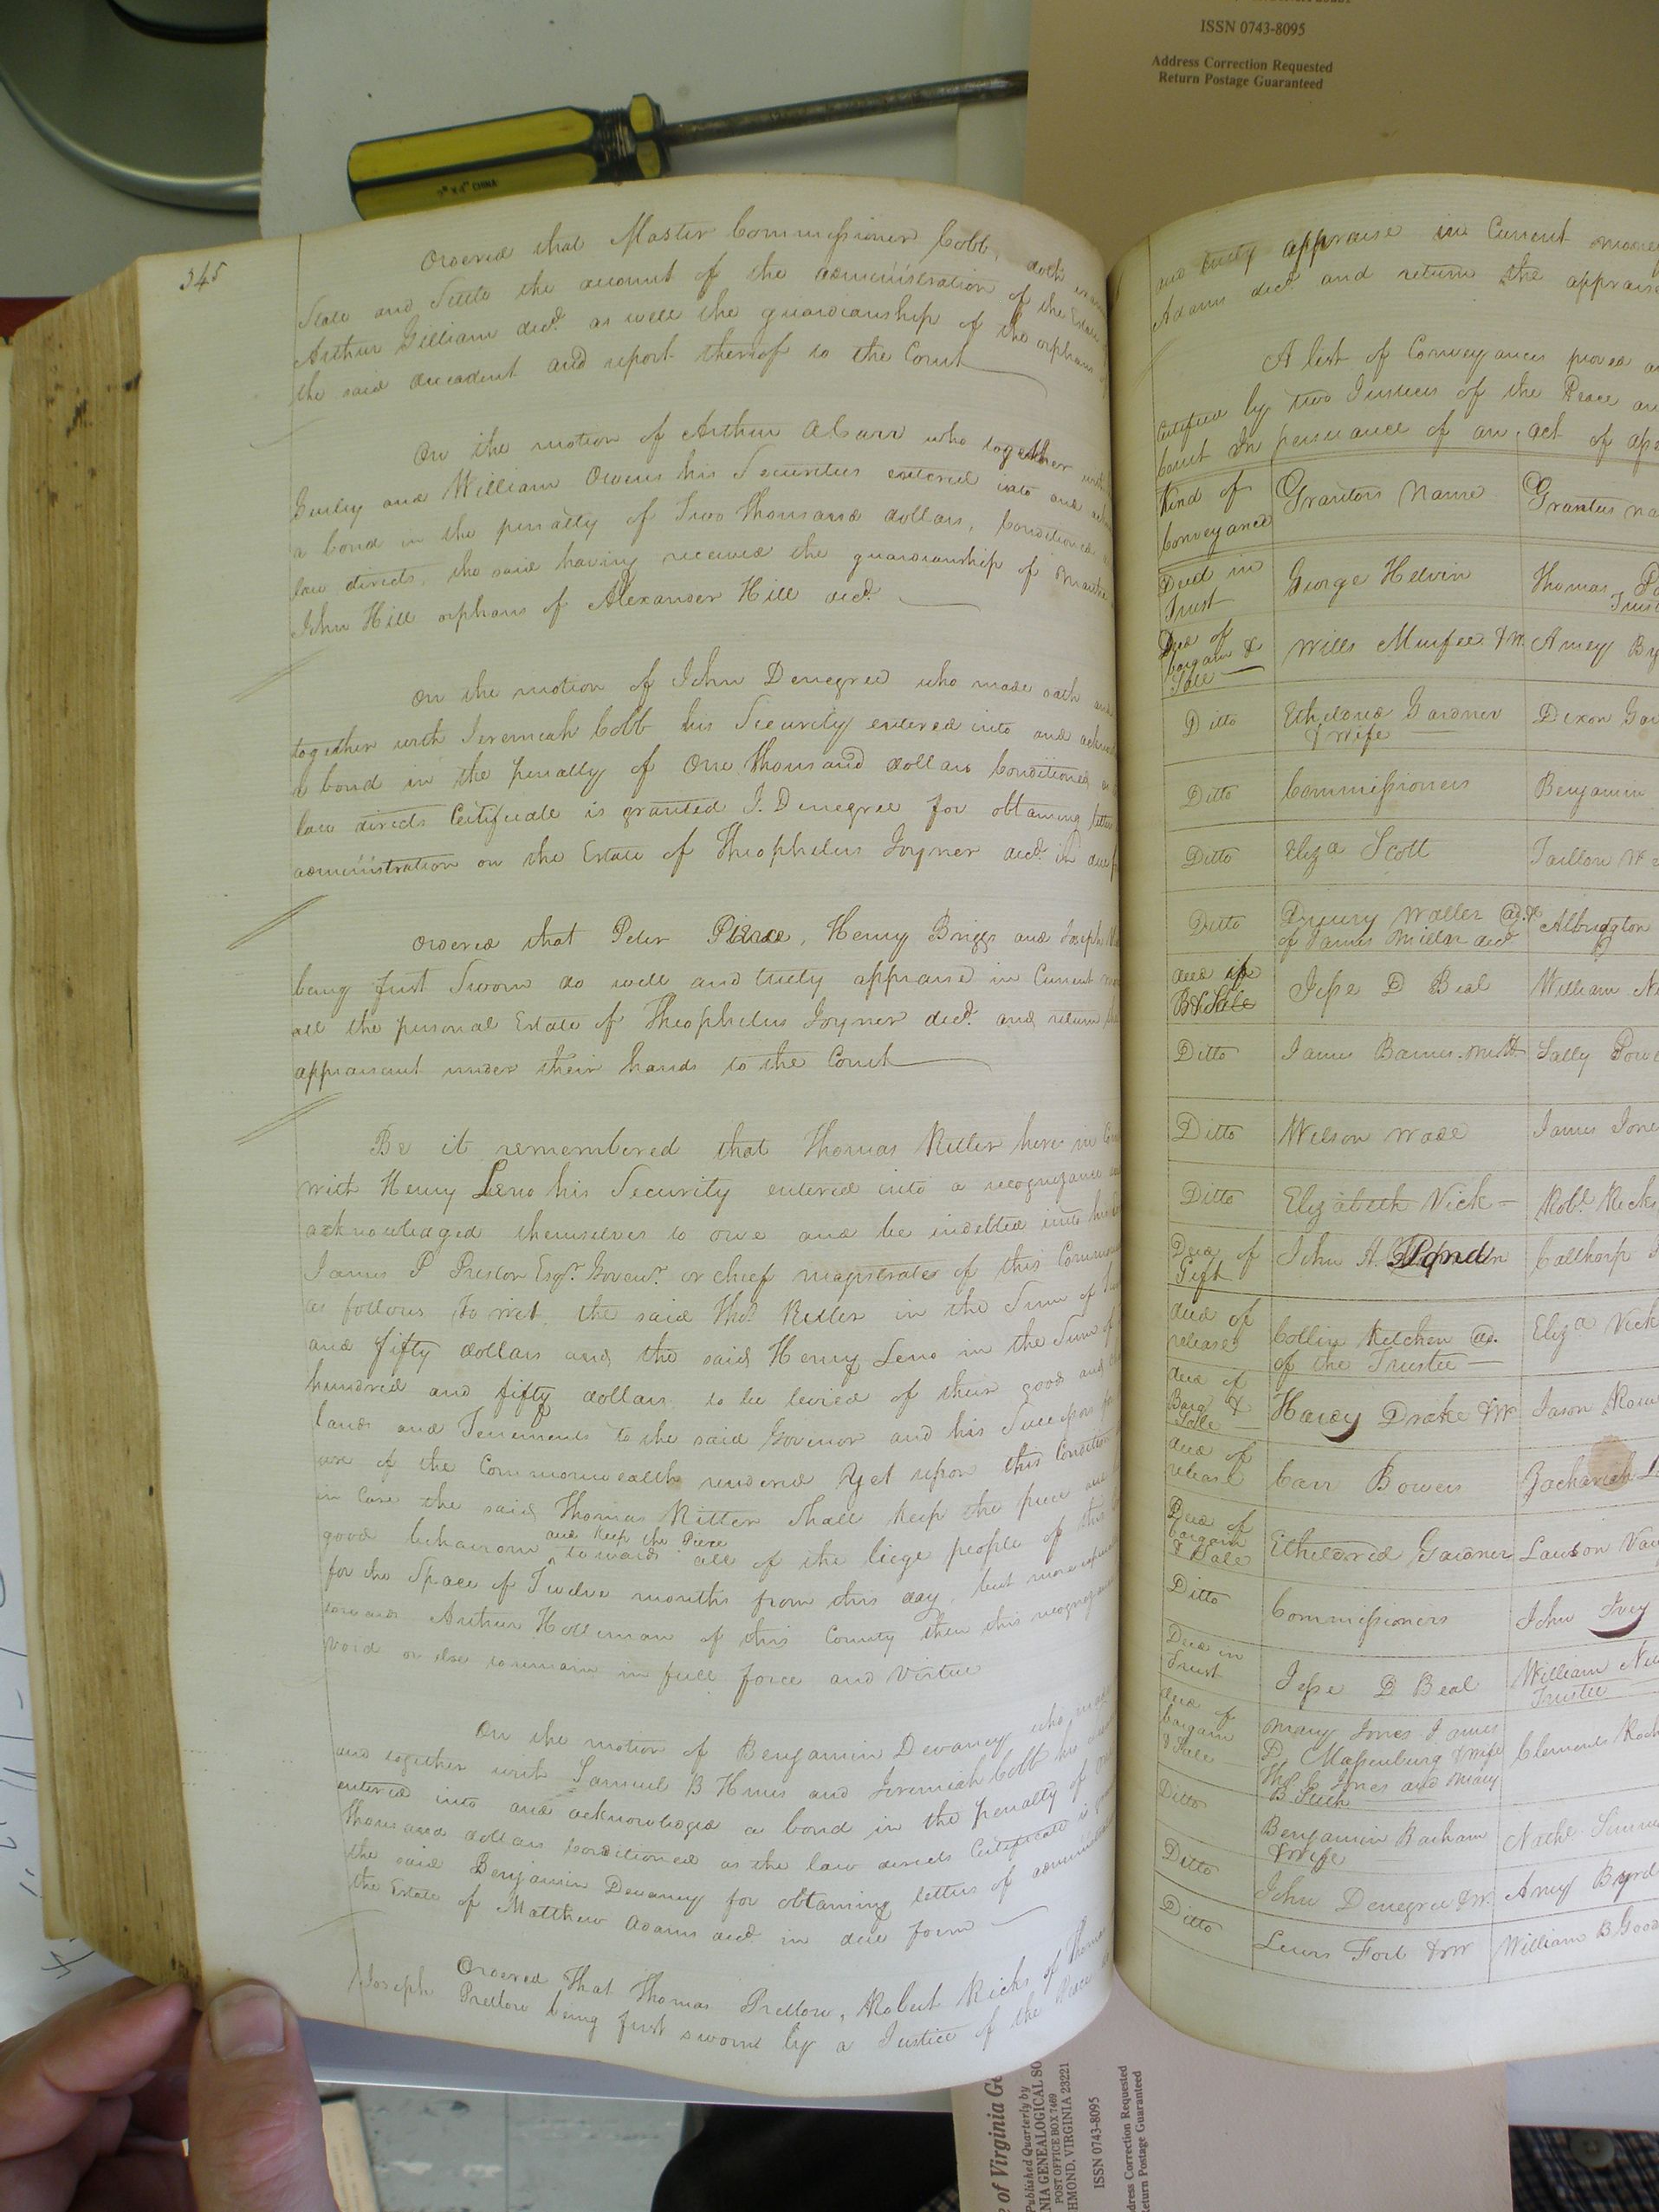 ISSN 0743-8095
Address Correction Requested
Return Postage Guaranteed
345
Ordered that Master Commissioner Cobb, doth
State and Settle the account of the administration of the Estate
Arthur Gilliam decd. as well the guardianship of the orphans of
the said decedent and report thereof to the Court
On the motion of Arthur A Carr who together with
Gurley and William Owens his Securities entered into and
a bond in the penalty of Two thousand dollars, Conditioned
law directs, the said having received the guardianship of
John Hill orphans of Alexander Hill decd.
On the motion of John Denegree who made oath and
together with Jeremiah Cobb his Security entered into and
a bond in the penalty of One thousand dollars Conditioned as
law directs Certificate is granted J. Denegree for obtaining
administration on the Estate of Theophelus Joyner decd. in due
Ordered that Peter Pierce, Henry Briggs and Joseph
being first Sworn do well and truely appraise in Current
all the personal Estate of Theophelus Joyner decd. and return
appraisment under their hands to the Court
Be it remembered that Thomas Ritter here in
with Henry Leno his Security entered into a recognizance
acknowledged themselves to owe and be indebted unto
James P Preston Esqr. Govenr. or chief magistrate of this
as follows, to wit, the said Thos. Ritter in the Sum of
and fifty dollars and the said Henry Leno in the Sum of
hundred and fifty dollars to be levied of their good and
lands and Tenements to the said Govenor and his Successors for
use of the Commonwealth rendered Yet upon this Condition
in Case the said Thomas Ritter shall keep the peice and
and keep the Piece
good behaviour towards all of the liege people of this
for the Space of Twelve months from this day, but more
towards Arthur Holleman of this County then this
void or else to remain in full force and Virtue
On the motion of Benjamin Devaney who made
and together with Samuel B Hines and Jeremiah Cobb his
entered into and acknowledged a bond in the penalty of One
thousand dollars Conditioned as the law directs Certificate is
the said Benjamin Devaney for obtaining letters of
the Estate of Matthew Adams decd. in due form
Ordered that Thomas Pretlow, Robert Ricks of Thomas
Joseph Pretlow being first sworn by a Justice of the Peace
and truely appraise in Current money
Adams decd. and return the
A list of Conveyances proved
Certified by two Justices of the Peace
Court In persuance of an act of
Kind of Conveyance Grantors Name Grantees
Deed in Trust George Helvin Thomas
Deed of bargain & Sale Wills Murfee & W. Amey
Ditto Etheldred Gardner & Wife Dixon
Ditto Commissioners Benjamin
Ditto Eliza Scott
Ditto Drewry Waller of James Miller decd.
deed of B & Sale Jesse D Beal William
Ditto James Barnes Sally
Ditto Wilson Wade James
Ditto Elizabeth Vick Robt. Ricks
Deed of Gift John A. Pond Calthorp
deed of release Collin Kitchen of the Trustee Eliza Vick
deed of Barg & Sale Hardy Drake & W Jason
deed of release Carr Bowers Zachariah
Deed of bargain & Sale Etheldred Gardner Lawson
Ditto Commissioners John Ivey
Deed in Trust Jesse D Beal William Trustee
deed of bargain & Sale Mary Jones James D. Massenburg & wife Thos. Jones and Mary B. Clements
Ditto Benjamin Barham & Wife Nathl.
Ditto John Denegree & W. Amey Byrd
Ditto Lewis Fort & W William B
of Virginia
Published Quarterly by
GENEALOGICAL
POST OFFICE BOX 7469
VIRGINIA 23221
ISSN 0743-8095
Address Correction Requested
Return Postage Guaranteed